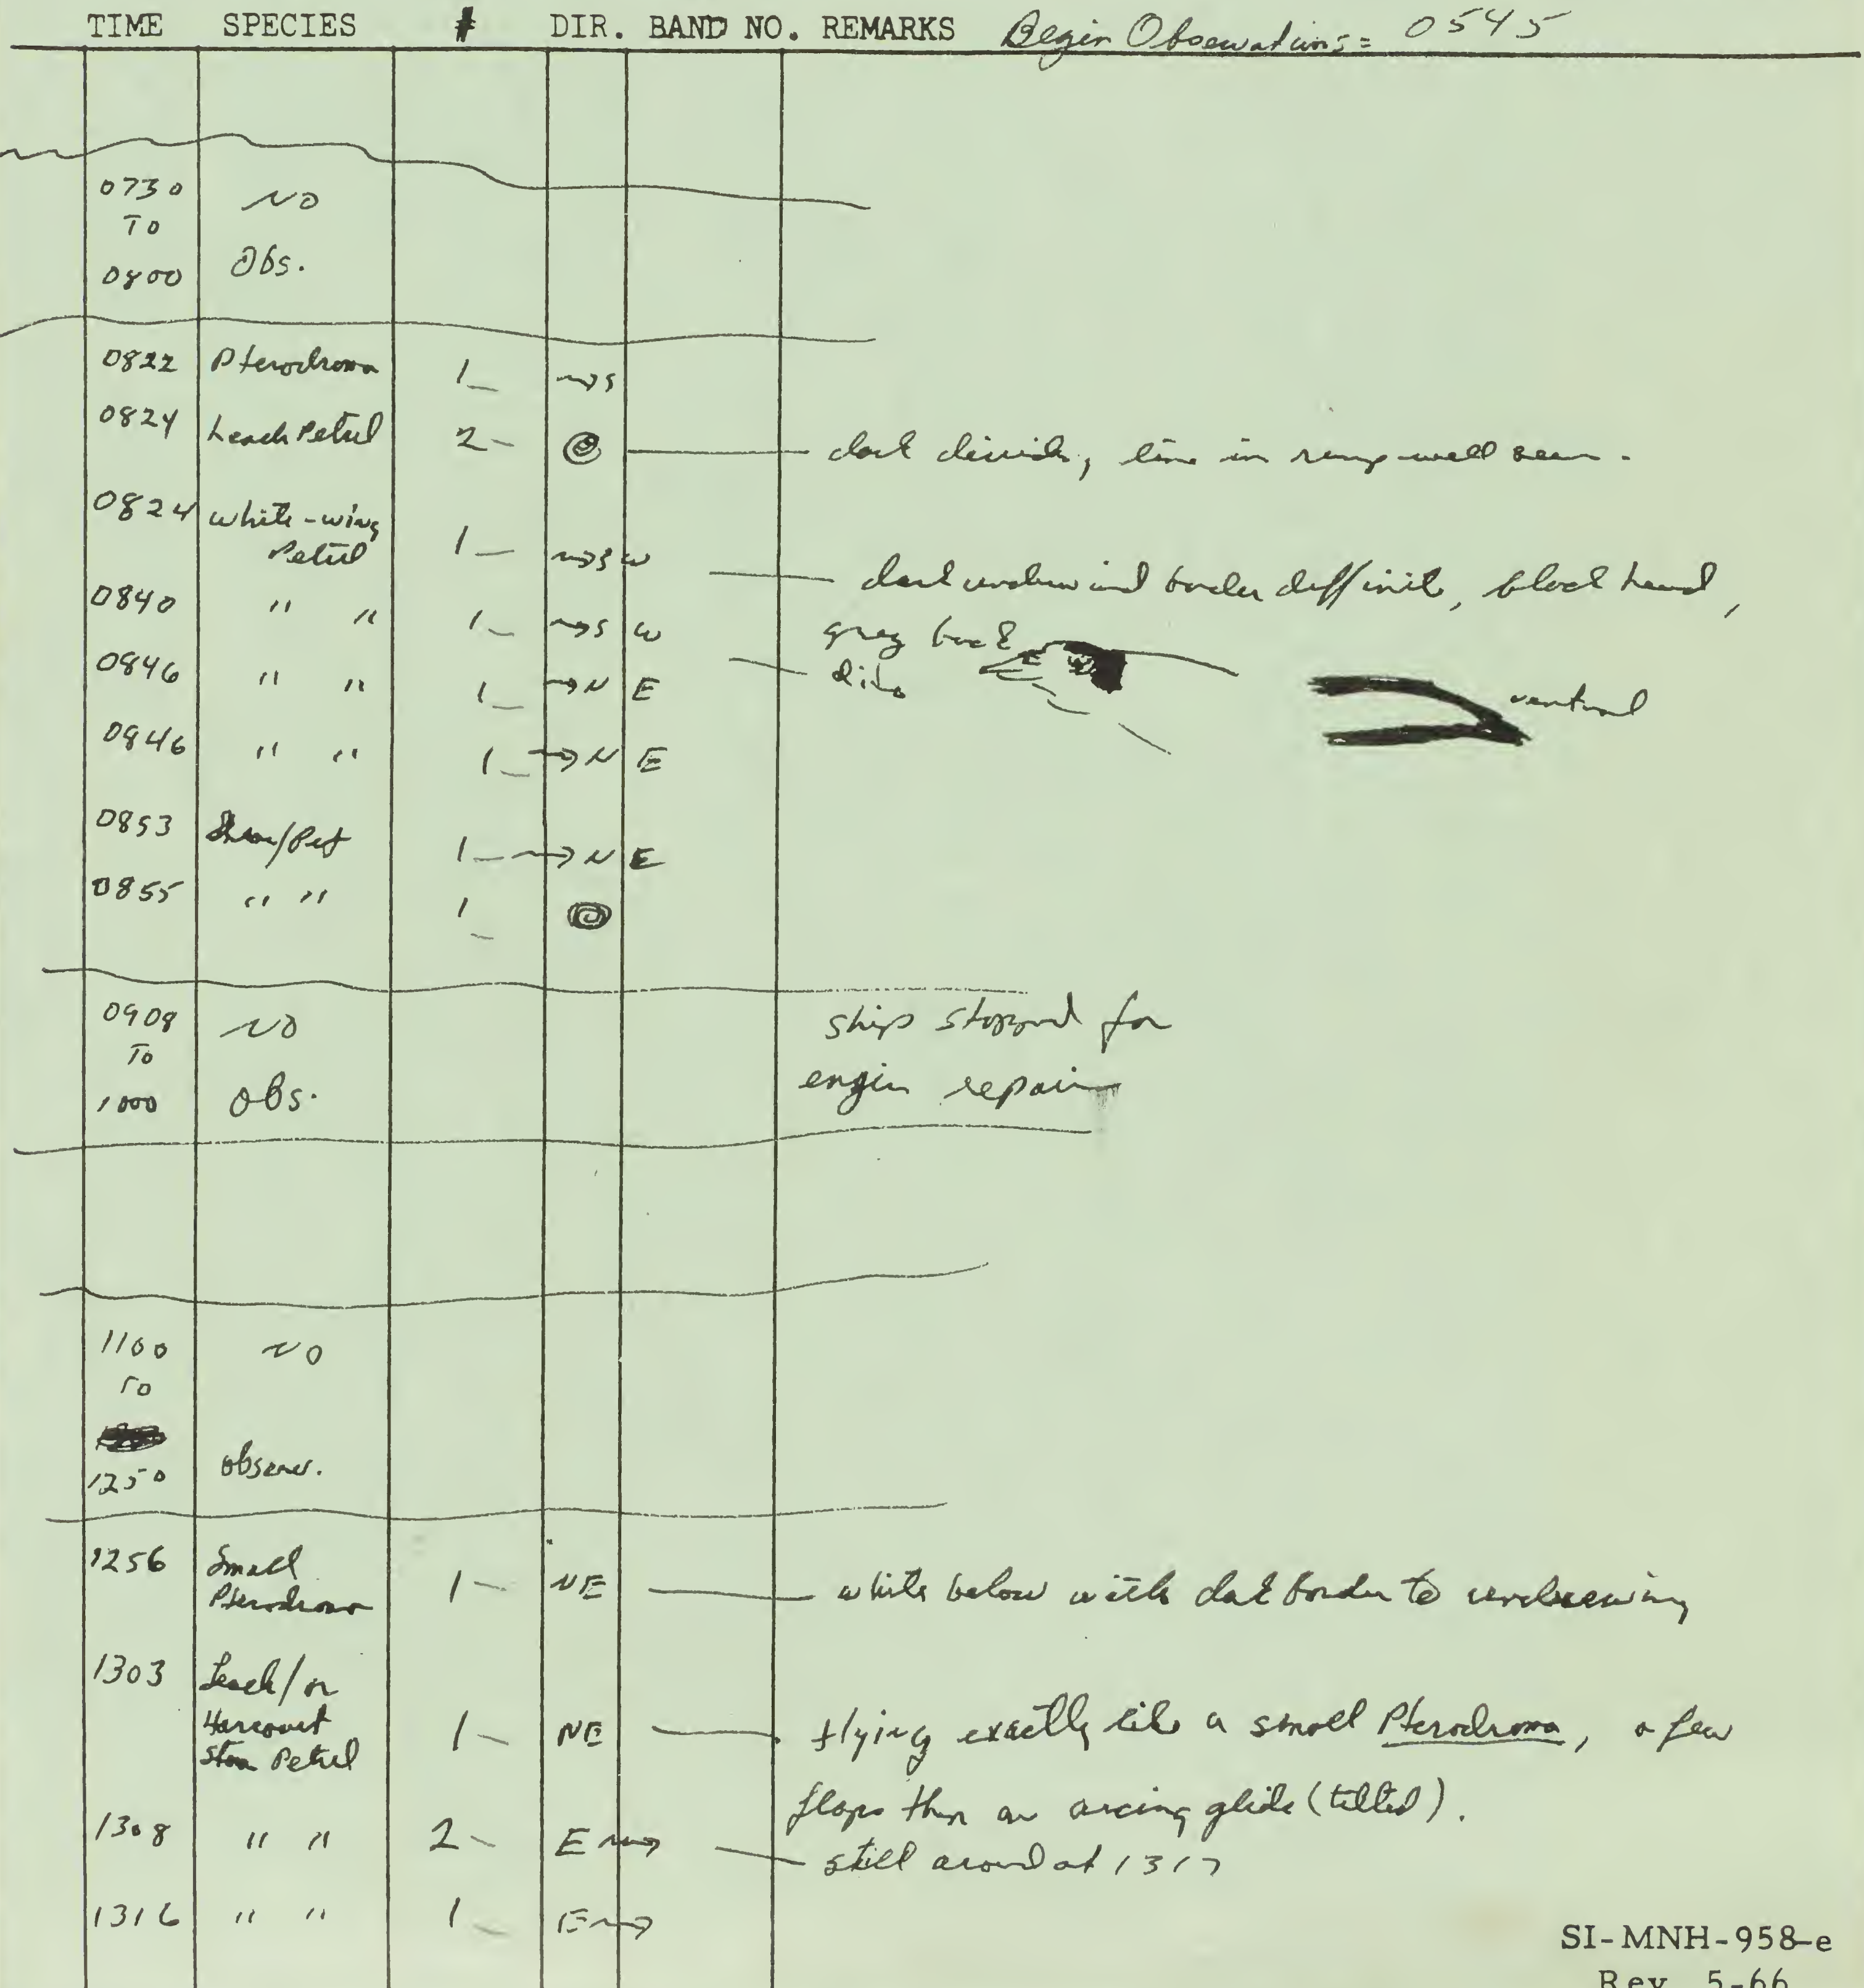 TIME SPECIES # DIR. BAND NO. REMARKS Begin Observations = 0545
0730 NO
To
0800 Obs.
0822 Pterodroma 1 → S
0824 Leach Petrel 2 dark dividing line in rump well seen.
0824 white-wing
Petrel 1 → SW dark underwing border deffinite, black head,
0840 " " 1 → SW grey back
0846 " " 1 → NE dito
ventral
0846 " " 1 → NE
0853 Shear/Pet 1 → NE
0855 " " 1
0908 NO ship stopped for
To
1000 obs. engin repair
1100 NO
To
1250 observ.
1256 Small
Pterodroma 1 NE white below with dark border to underwing
1303 Leach/or
Harcourt
storm Petrel 1 NE flying exactly like a small Pterodroma, a few
flaps then an arcing glide (tilted).
1308 " " 2 E → still around at 1317
1316 " " 1 E →
SI-MNH-958-e
Rev. 5-66